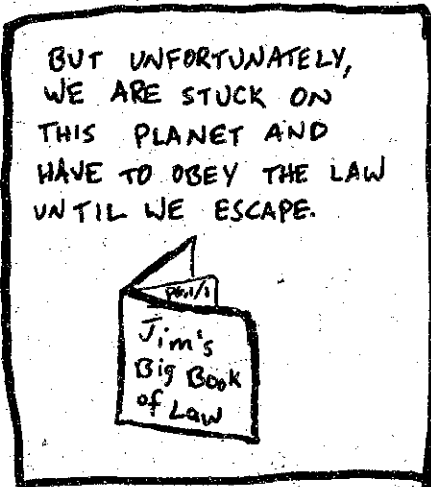 BUT UNFORTUNATELY,
WE ARE STUCK ON
THIS PLANET AND
HAVE TO OBEY THE LAW
UNTIL WE ESCAPE.
pg.1/1
Jim's
Big Book
of Law